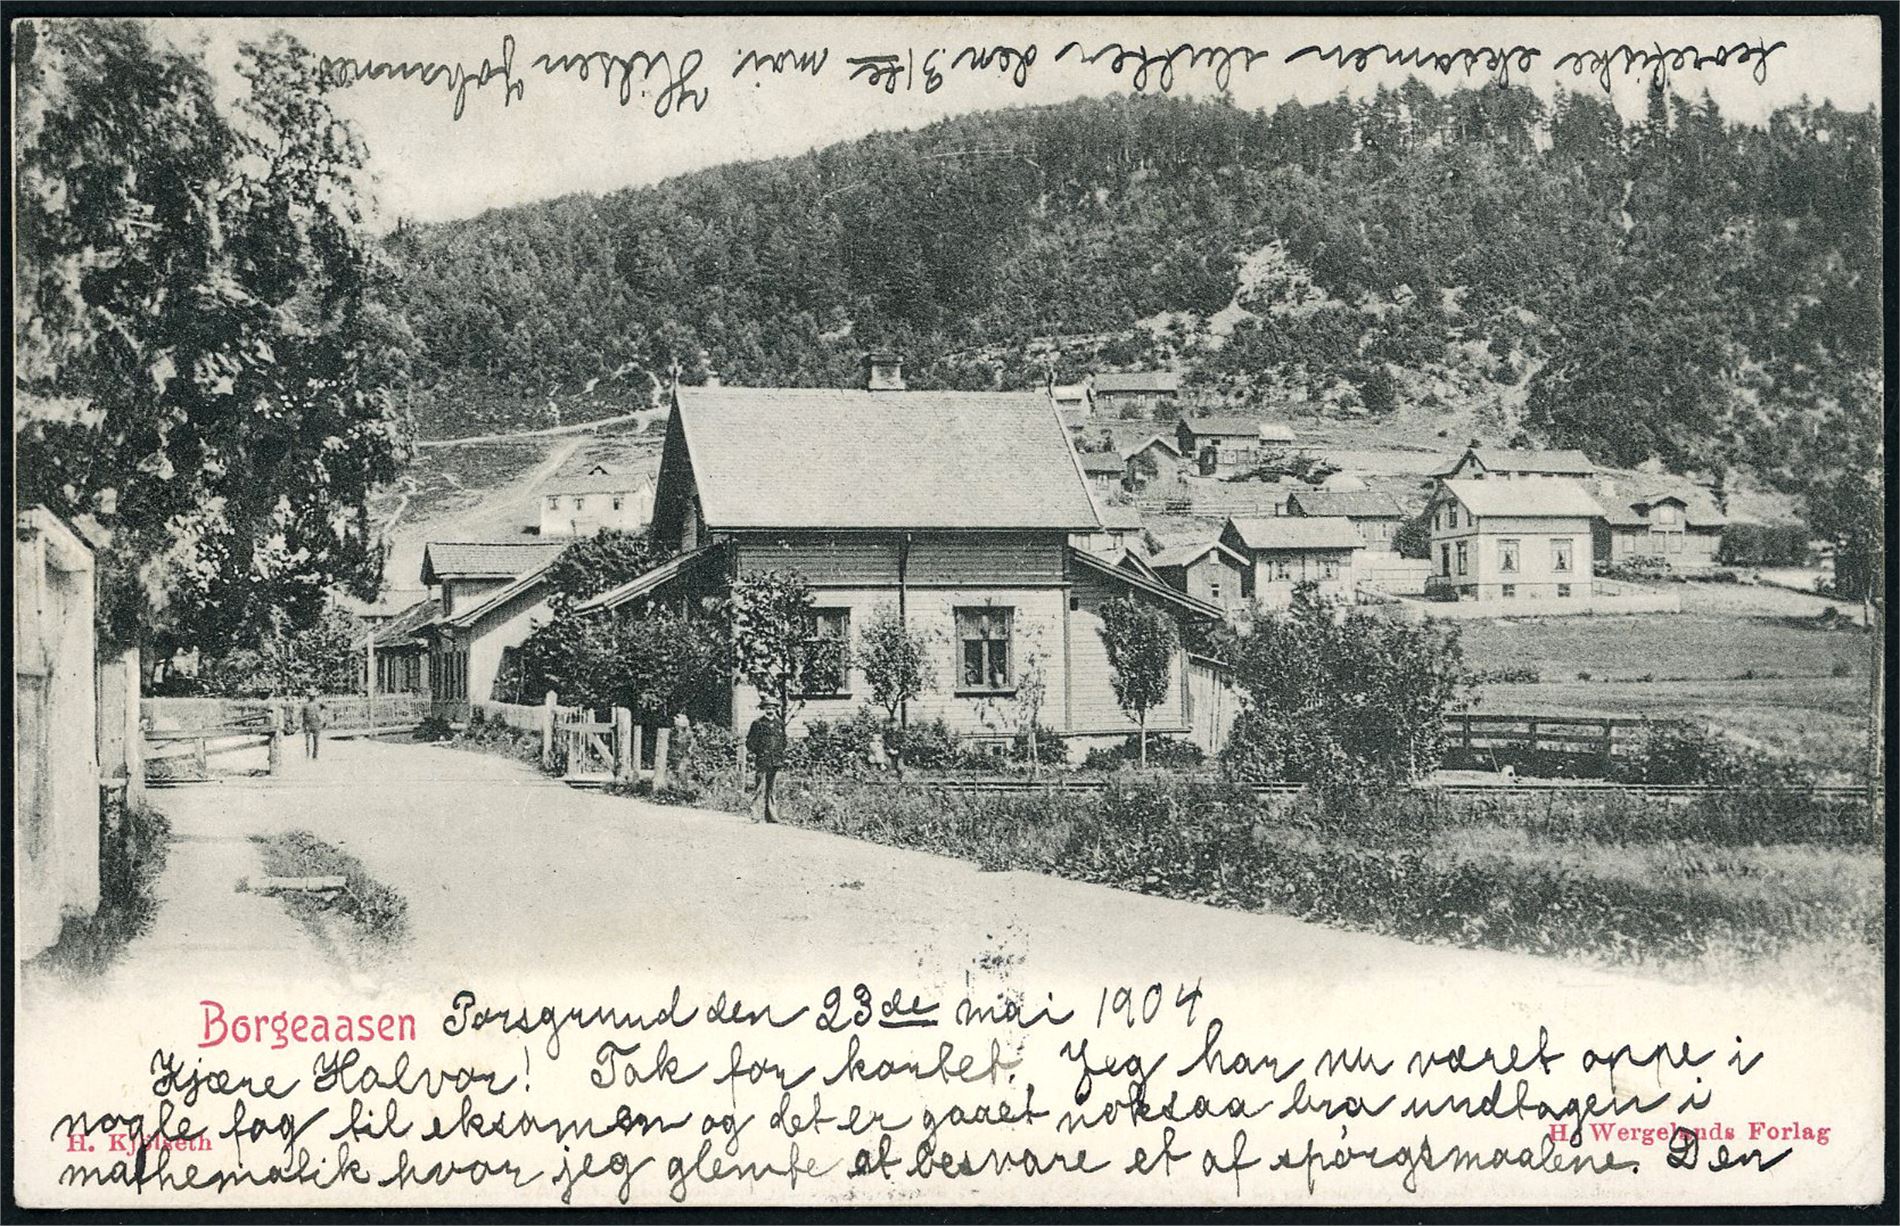 Borgeaasen
Porsgrund den 23de mai 1904
Kjære Halvor! Tak for kortet. Jeg har nu været oppe i
nogle fag til eksamen og det er gaaet noksaa bra undtagen i
H. Kjølseth
H. Wergelands Forlag
mathematik hvor jeg glemte at besvare et af spørgsmaalene. Den
teoretiske eksamen slutter den 31te mai. Hilsen Johannes